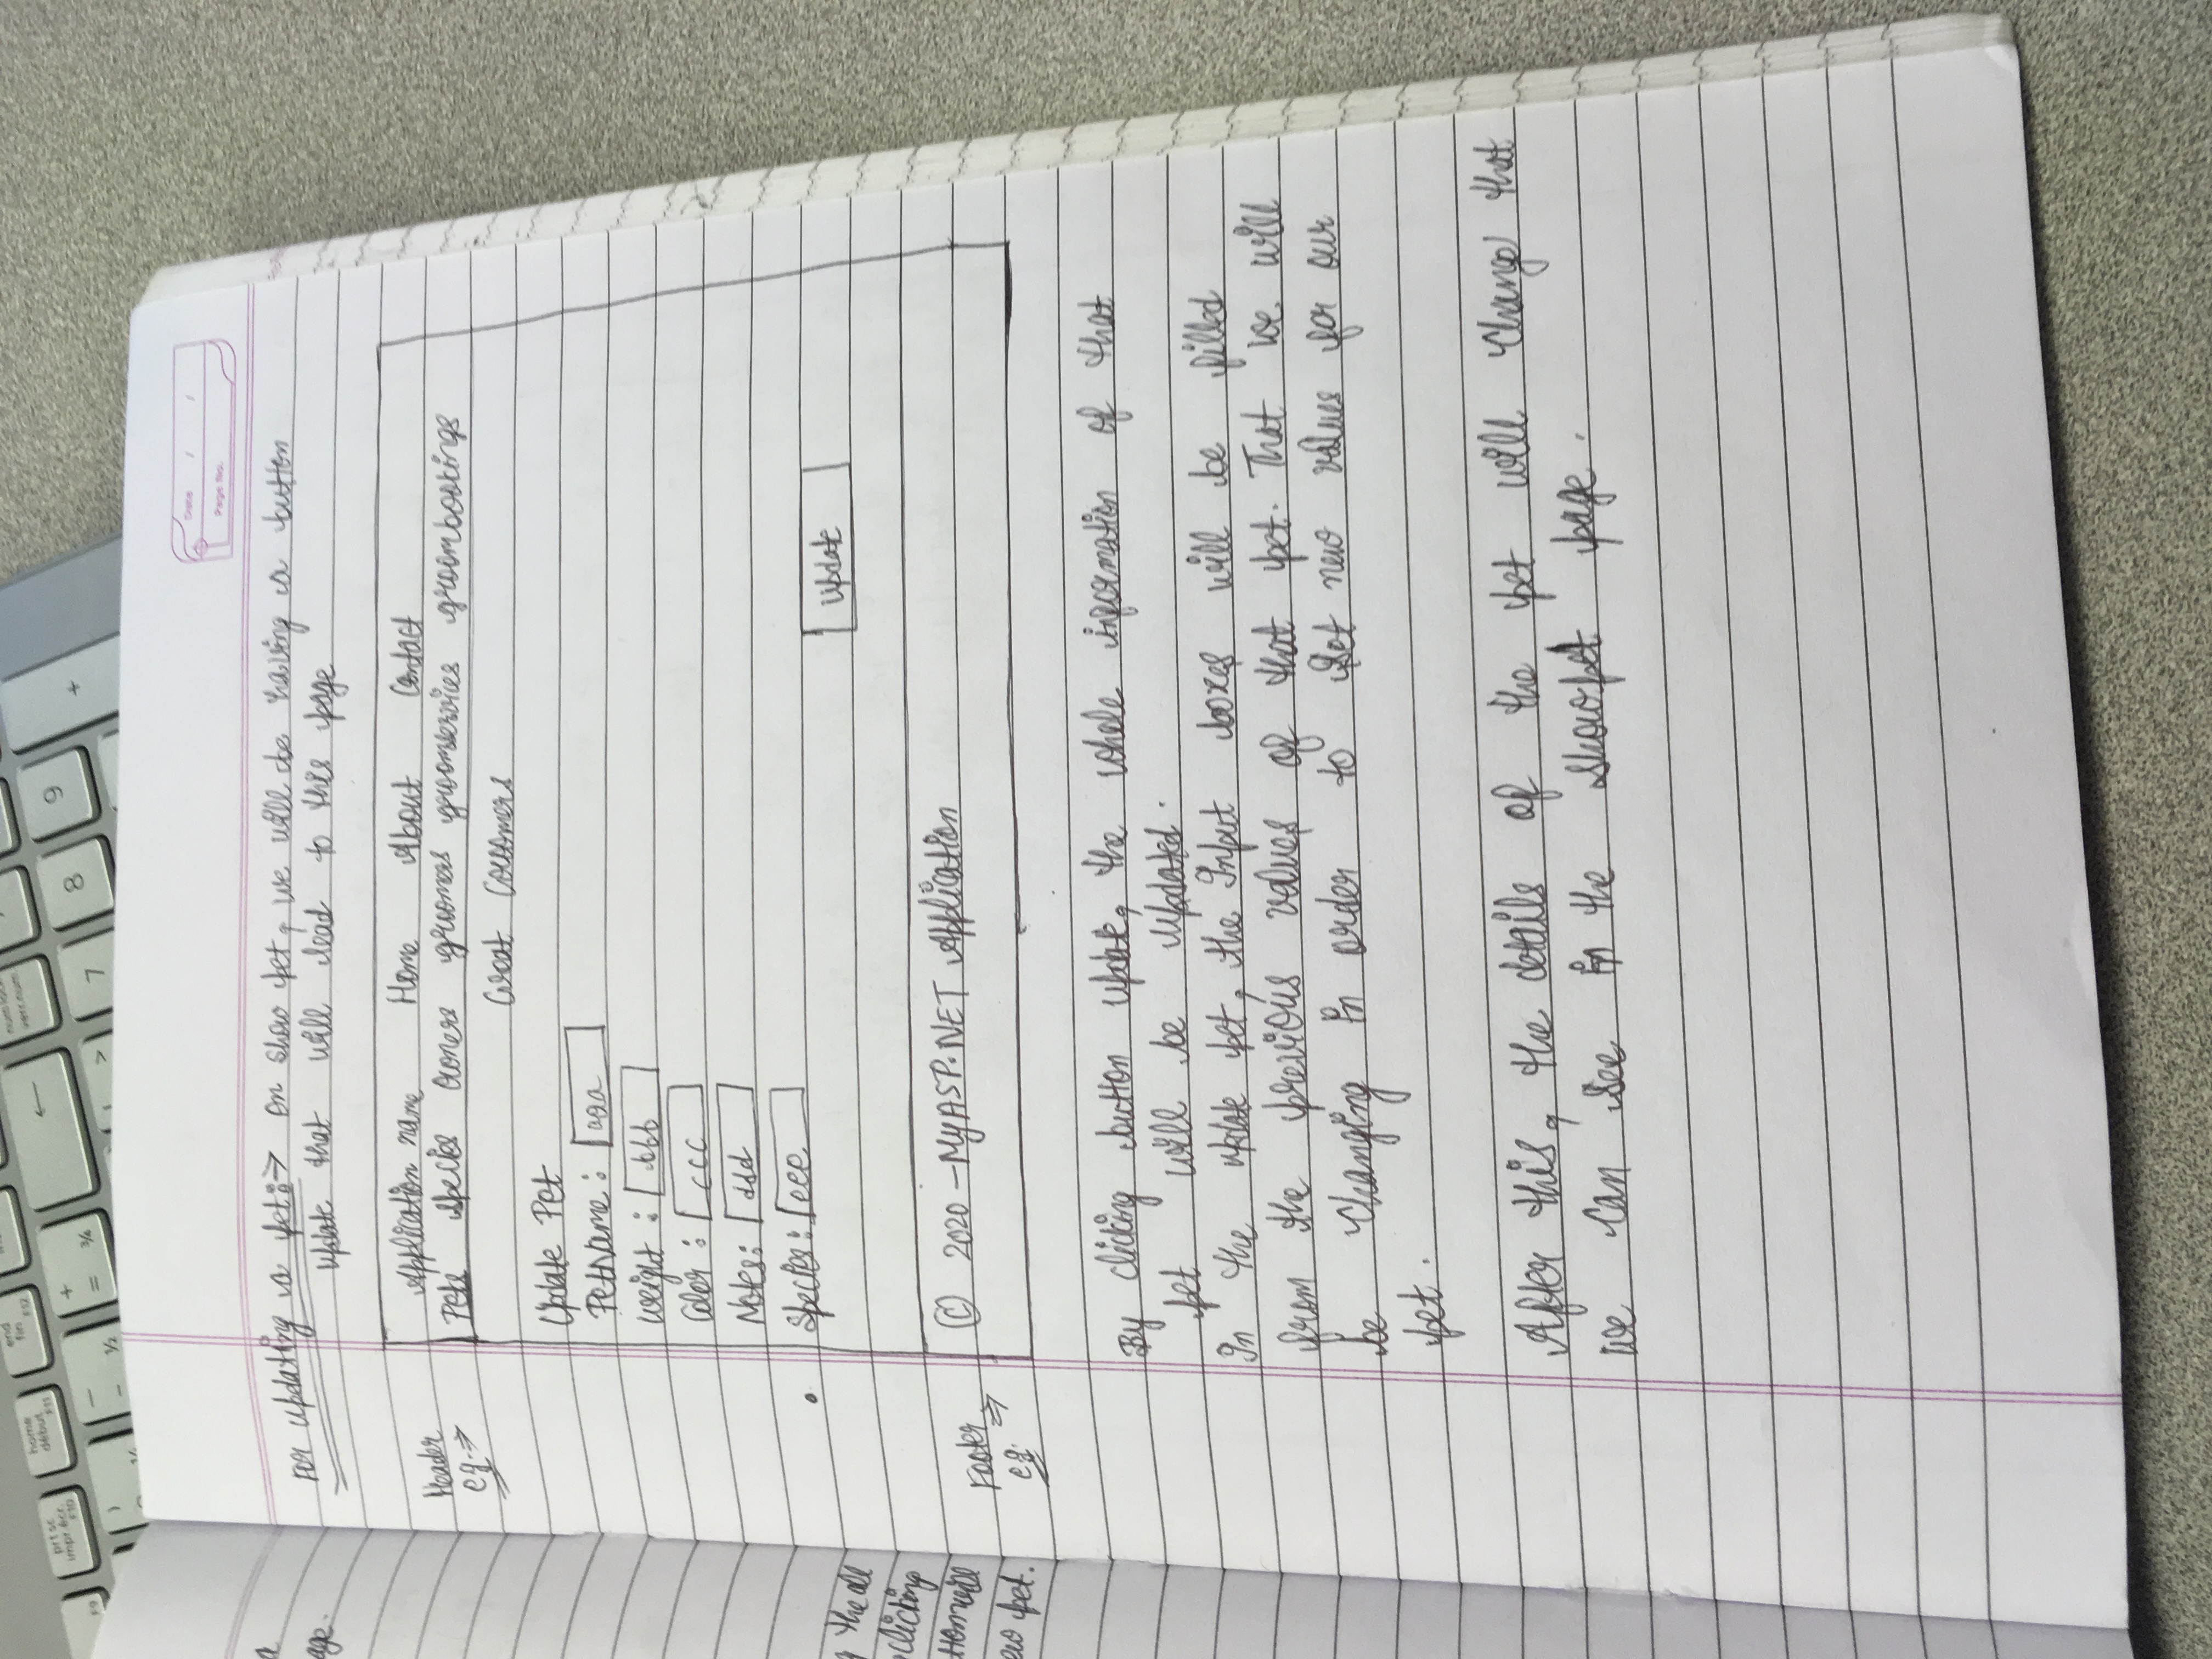 prt sc
impr écr
F10
home
début
F11
end
fin
F12
F9
num lock
verr.num
←
+
=
¾
½
7
8
9
+
)
>
Date / /
Page No.
For updating a pet :→ On show pet, we will be having a button
update that will lead to this page
Header
e.g. ⇒
Application name Home About Contact
Pets Species Owners groomers groomservices groombookings
Great
Update Pet
PetName : aaa
Weight : bbb
Color : ccc
Notes: ddd
Species: eee
Update
Footer ⇒
e.g.
© 2020 – My ASP.NET Application
By clicking button update, the whole information of that
pet will be updated.
In the update pet, the Input boxes will be filled
from the previous values of that pet. That we will
be changing in order to set new values for our
pet.
After this, the details of the pet will change that
we can see in the showpet page.
a
age.
the all
clicking
pet.